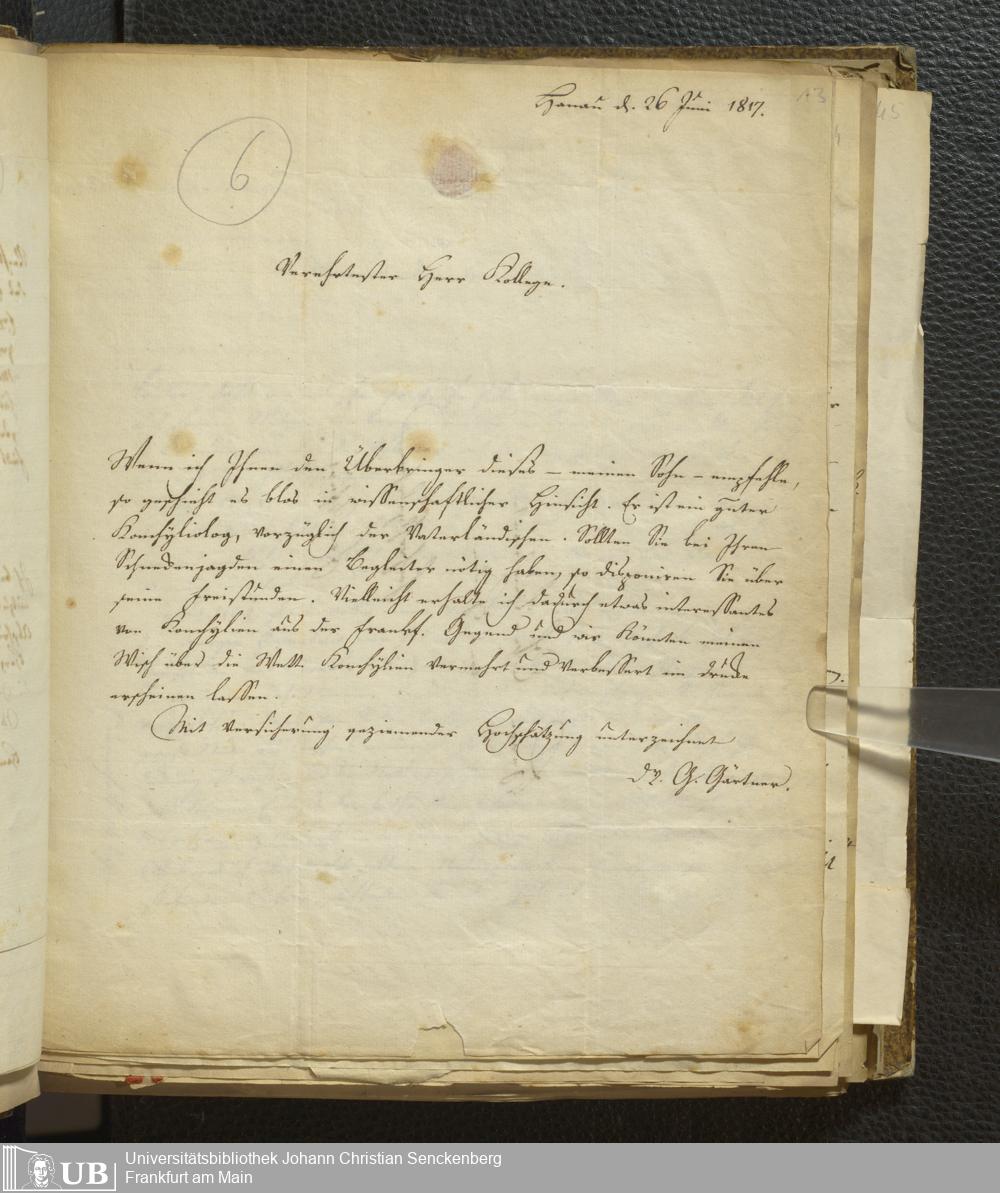 Hanau d. 26 Juni 1817.
13
45
6
Verehrtester Herr Kollege.
Wenn ich Ihnen den Überbringer dieses – meinen Sohn – empfehle,
so geschieht es blos in wissenschaftlicher Hinsicht. Er ist ein guter
Konchyliolog, vorzüglich der Vaterländischen. Sollten Sie bei Ihren
Schneckenjagden einen Begleiter nötig haben, so disponiren Sie über
seine Freistunden. Vielleicht erhalte ich dadurch etwas interessantes
von Konchylien aus der Frankf. Gegend und wir könnten meinen
Wisch über die Wett. Konchylien vermehrt und verbessert im Drucke
erscheinen lassen.
Mit Versicherung geziemender Hochschätzung unterzeichnet
Dr. G. Gärtner.
UB
Universitätsbibliothek Johann Christian Senckenberg
Frankfurt am Main